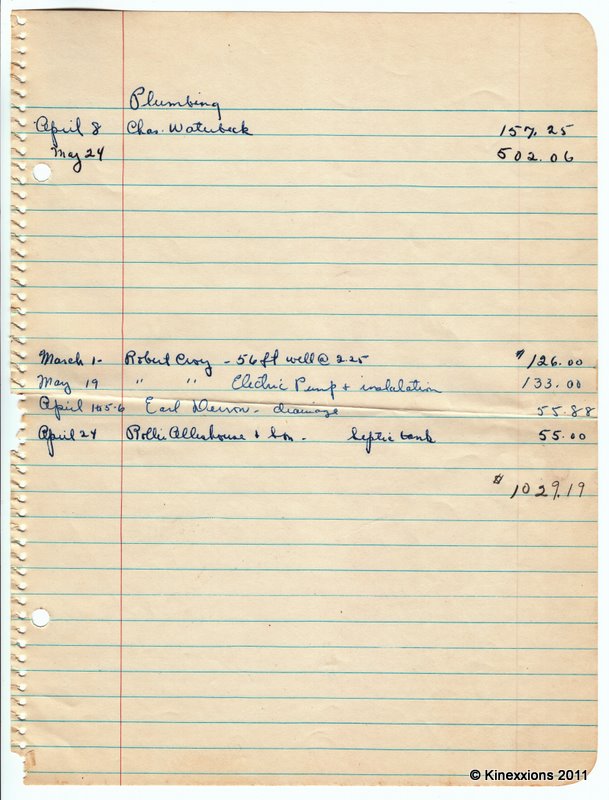 Plumbing
April 8 Chas. Waterbeck 157.25
May 24 502.06
March 1- Robert Croy - 56 ft well @ 2.25 $126.00
May 19 " " Electric Pump + instalation 133.00
April Earl - drainage 55.88
April 24 Rollie Allishouse & Son - Septic tank 55.00
$1029.19
© Kinexxions 2011